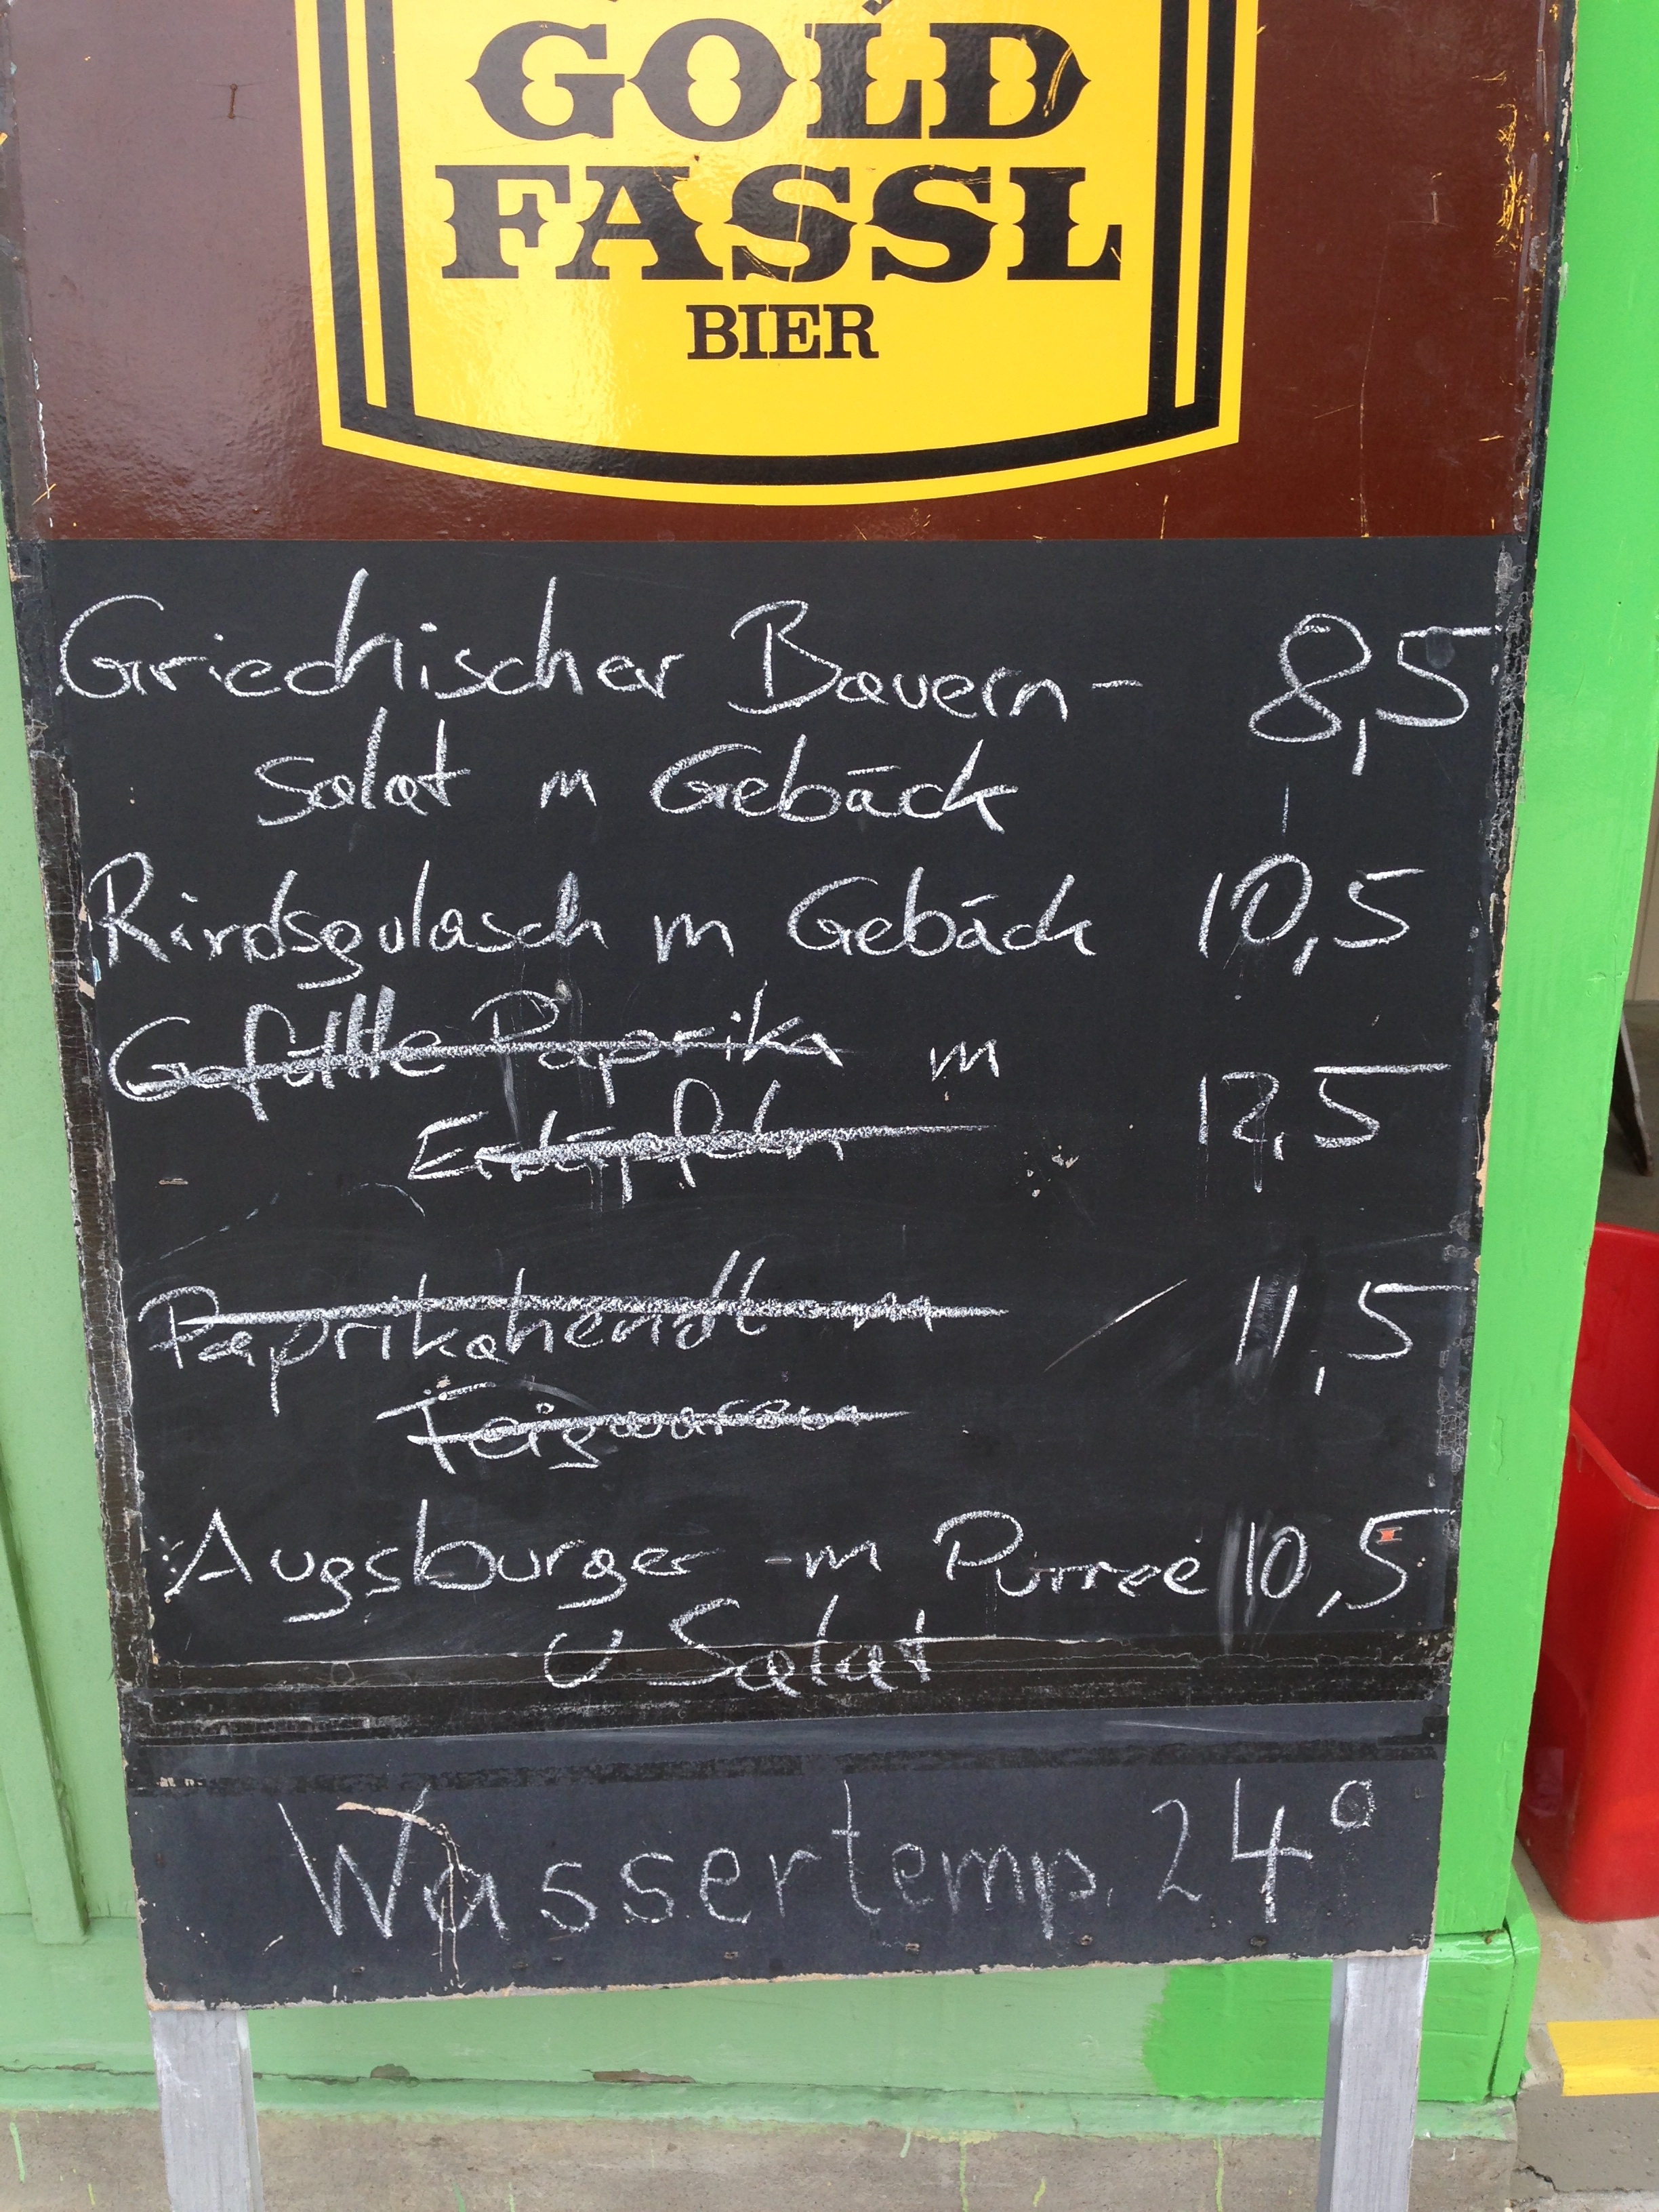 GOLD
FASSL
BIER
Griechischer Bauern- 8,5
salat m Gebäck
Rindsgulasch m Gebäck 10,5
Gefüllte Paprika m
Erdäpfeln 12,5
Paprikahendl m 11,5
Teigwaren
Augsburger m Purree 10,5
u Salat
Wassertemp. 24°